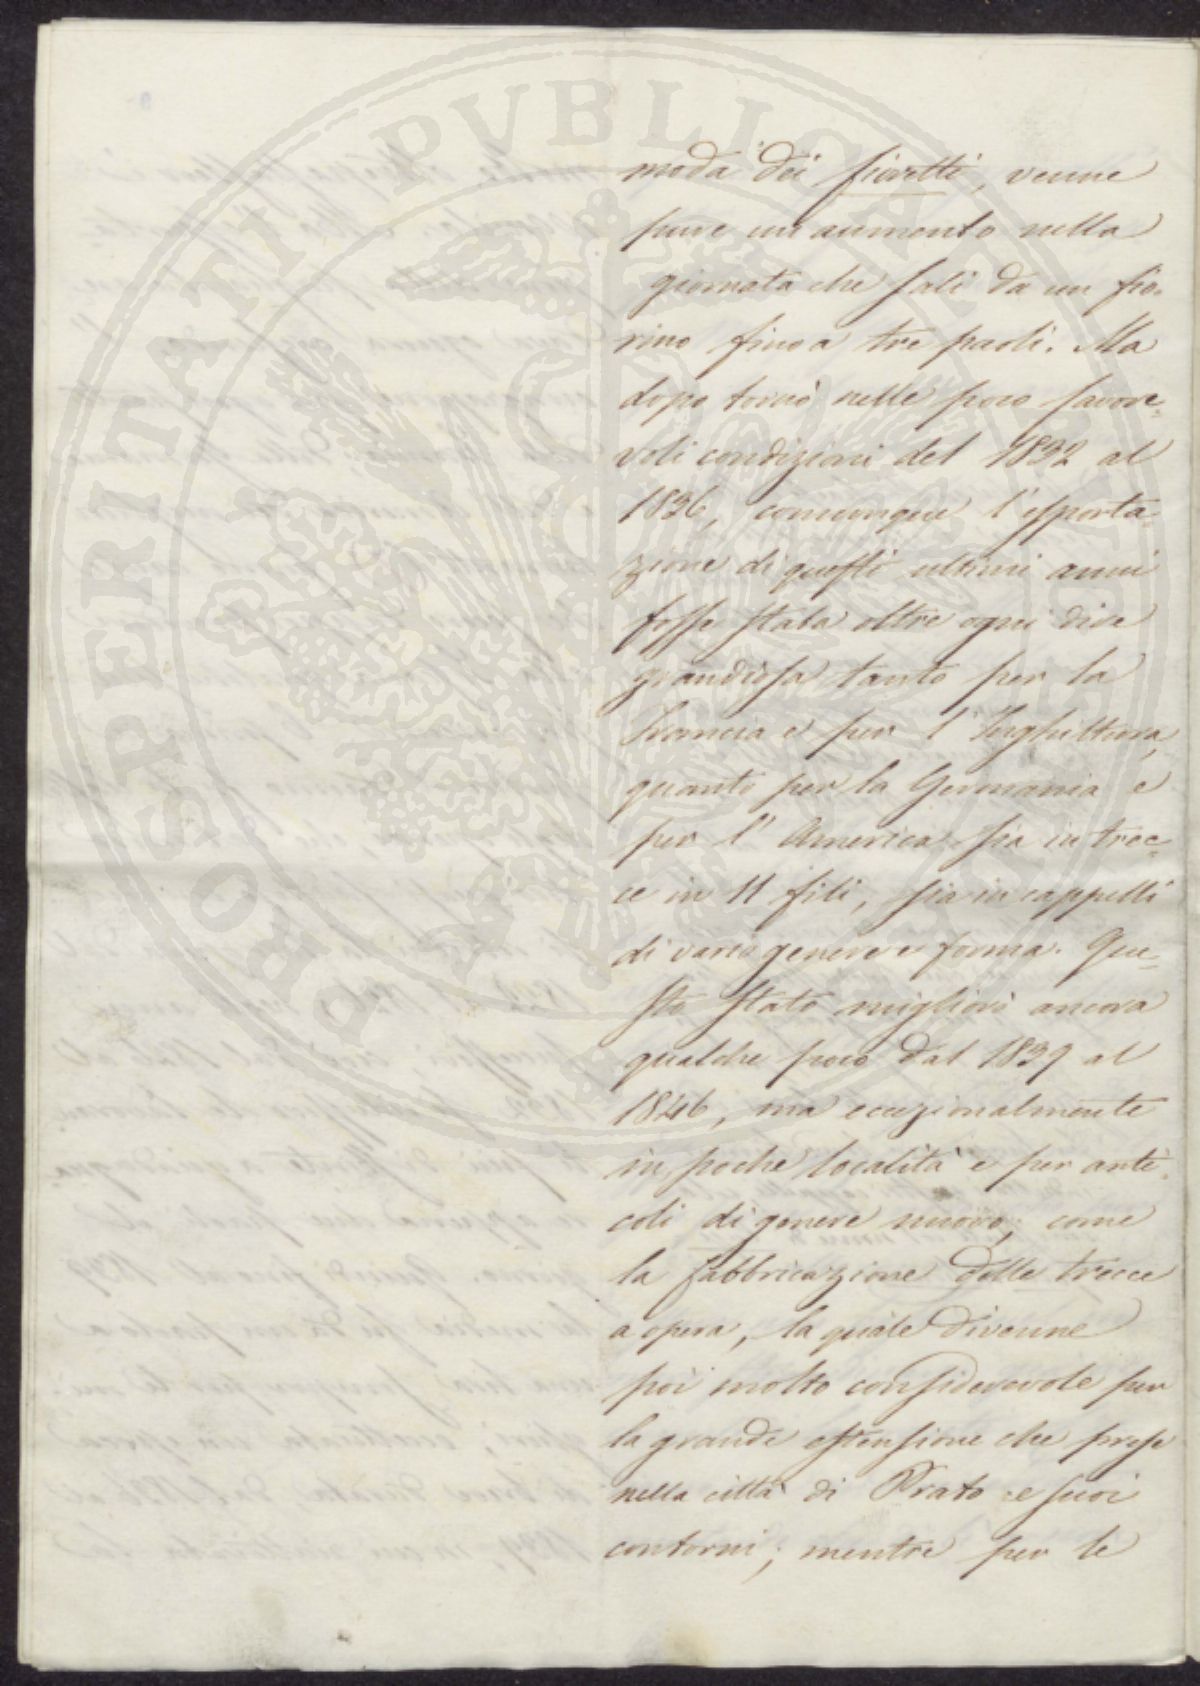 PROSPERITATI PVBLICAE
moda dei fioretti, venne
pure un aumento nella
giornata che salì da un fio-
rino fino a tre paoli. Ma
dopo tornò nelle poco favore-
voli condizioni del 1832 al
1836, comunque l'esporta-
zione di questi ultimi anni
fosse stata oltre ogni dire
grandiosa tanto per la
Francia e per l'Inghilterra,
quanto per la Germania e
per l'America sia in trec-
ce in 11 fili, sia in cappelli
di vario genere e forma. Que-
sto stato migliorò ancora
qualche poco dal 1839 al
1846, ma eccezionalmente
in poche località e per arti-
coli di genere nuovo, come
la fabbricazione delle trecce
a opera, la quale divenne
poi molto considerevole per
la grande estensione che prese
nella città di Prato e suoi
contorni; mentre per le